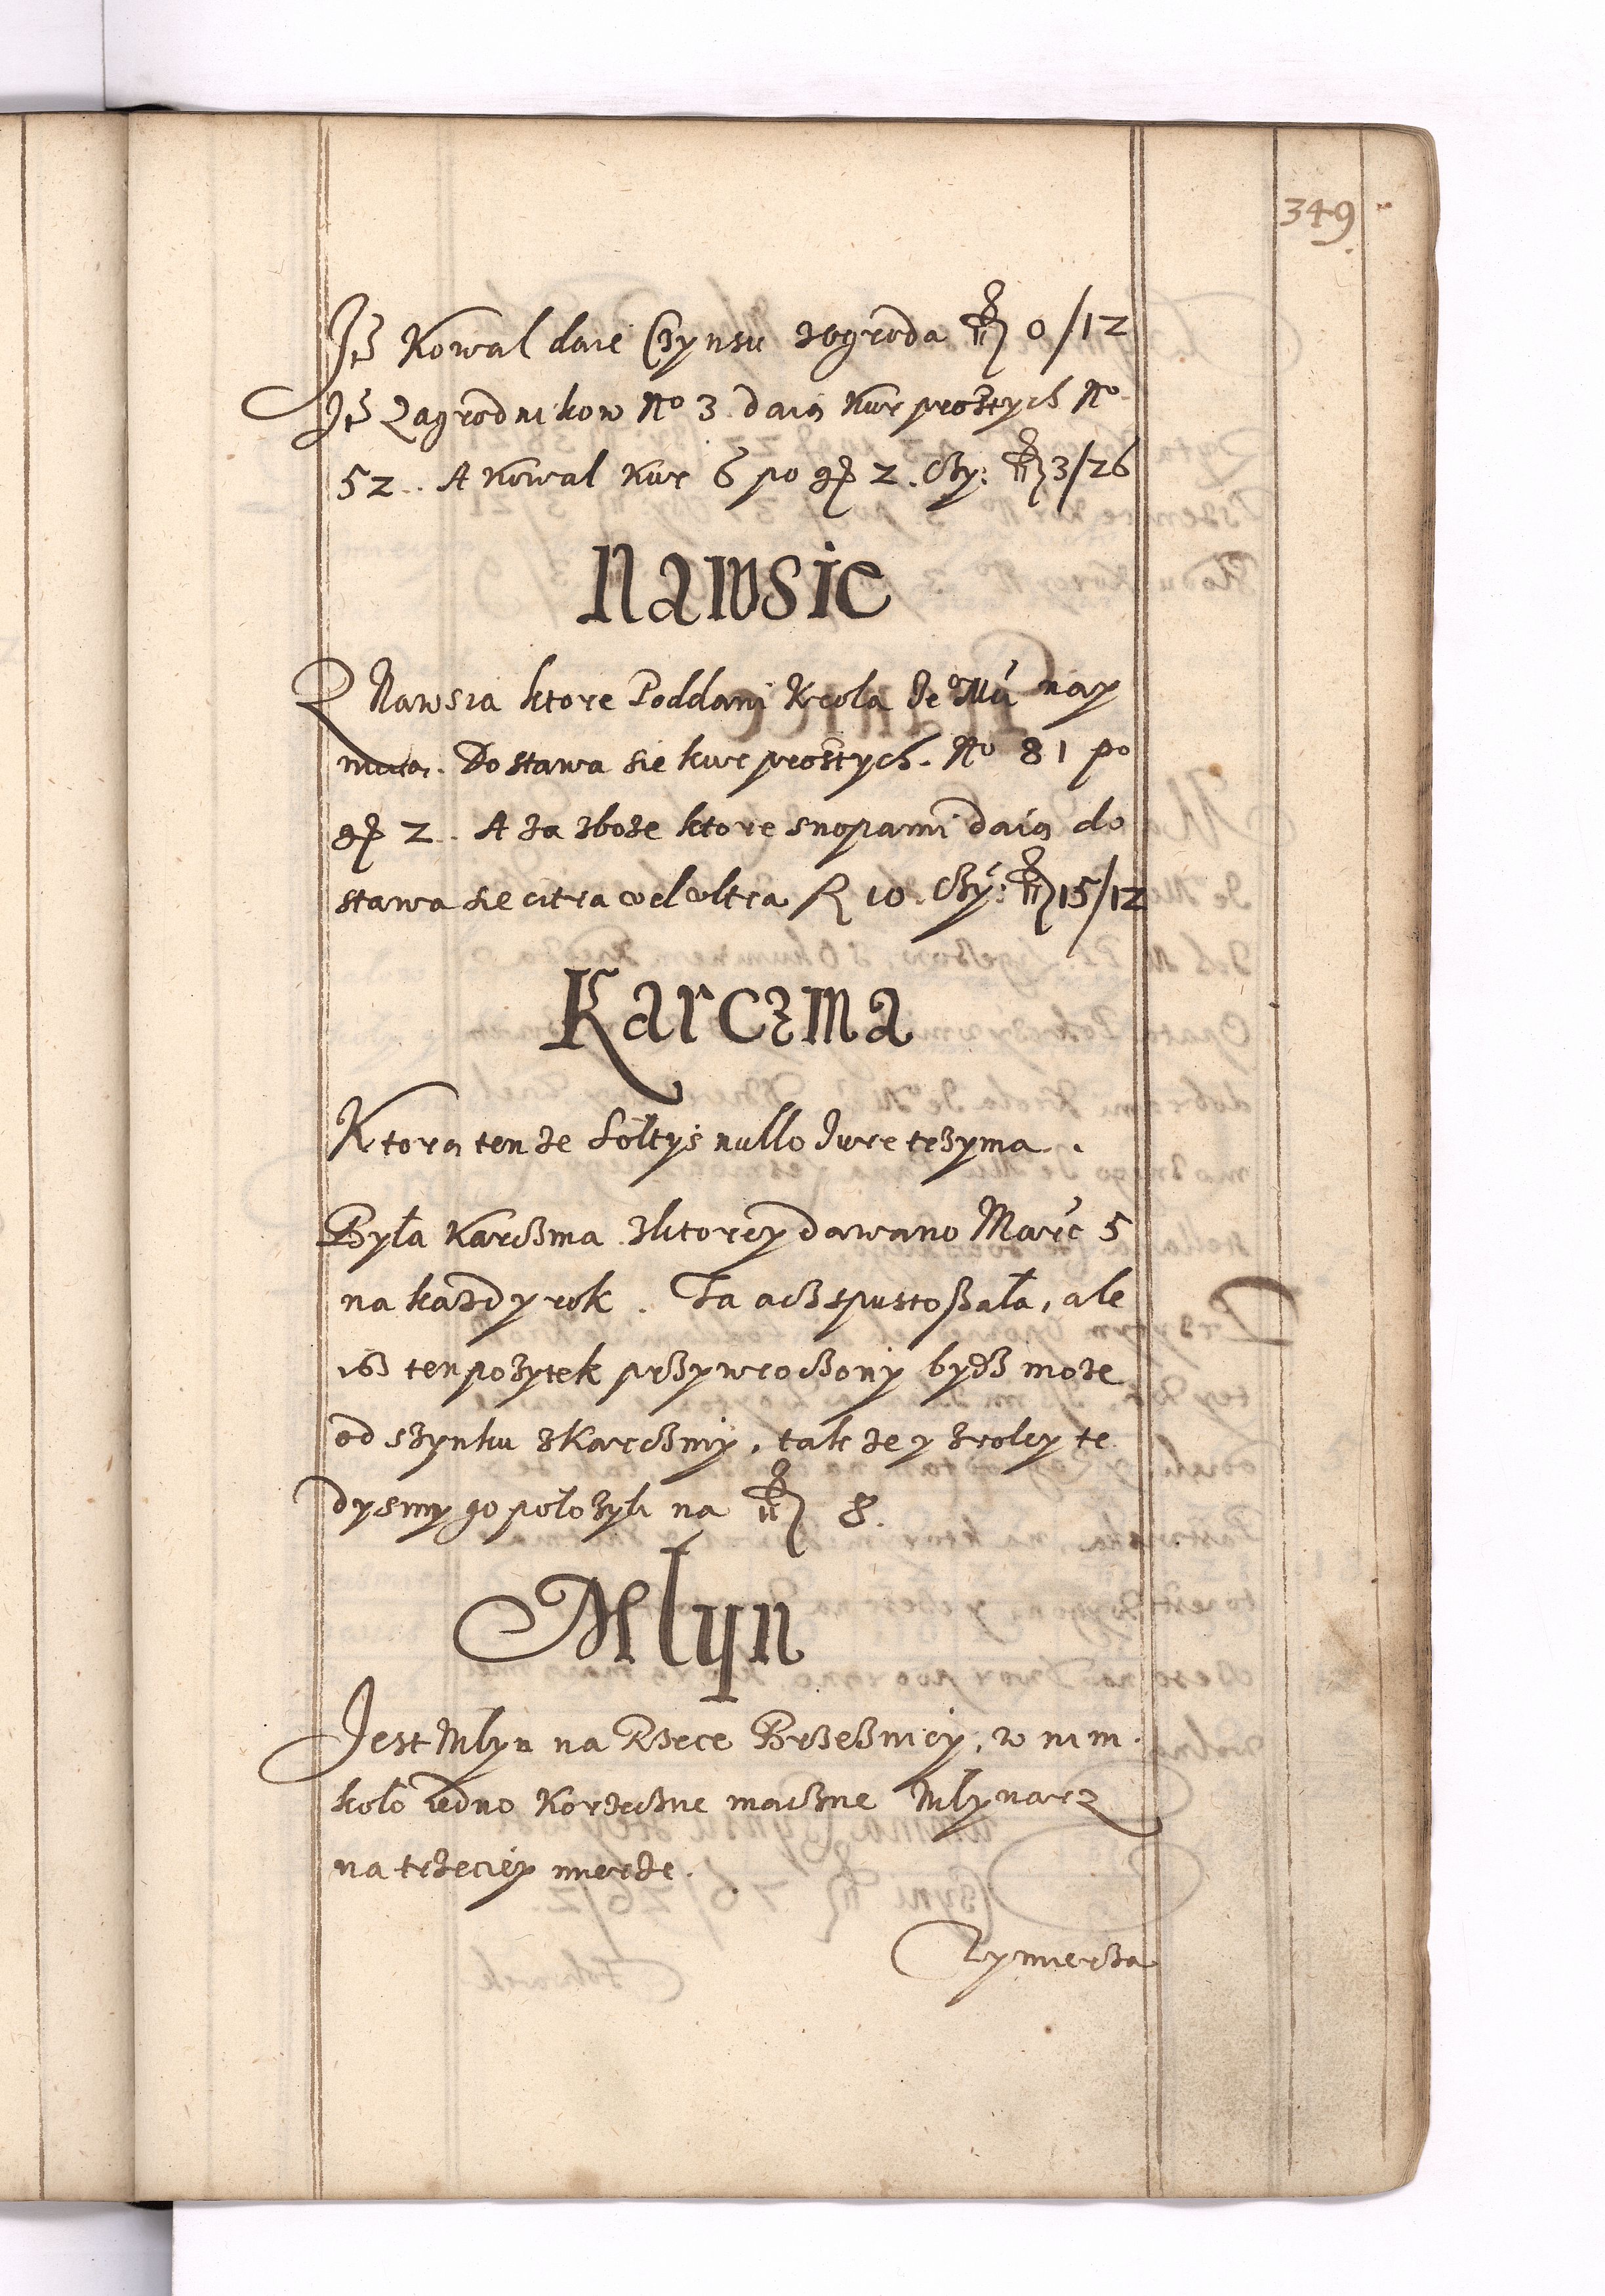 349
Itē Kowal daie Czynsu zogroda fl 0/12
Itē Zagrodnikow No 3 daią Kur prostych No
52. A Kowal Kur 6 po gr 2. Czy: fl 3/26
Nawsie
Z Nawsia ktore Poddani Krola Je° Mći nay
muią. Dostawa sie kur prostych. No 81 po
gr 2. A za zboże ktore snopami daią do
stawa sie citra vel vltra fl 10. Czy: fl 15/12
Karczma
Ktorą tenże Sołtys nullo Jure trzyma.
Była Karczma zktorey dawano Marc 5
na każdy rok. Ta acz spustoszała, ale
isz ten pożytek przywroczony bydz może
od szynku zKarczmy, także y zroley te
dysmy go położyli na fl 8.
Młyn
Jest Młyn na Rzece Brzesznicy, w nim
koło iedno Korzeczne maczne Młynarz
na trzeciey mierze.
Zymierza